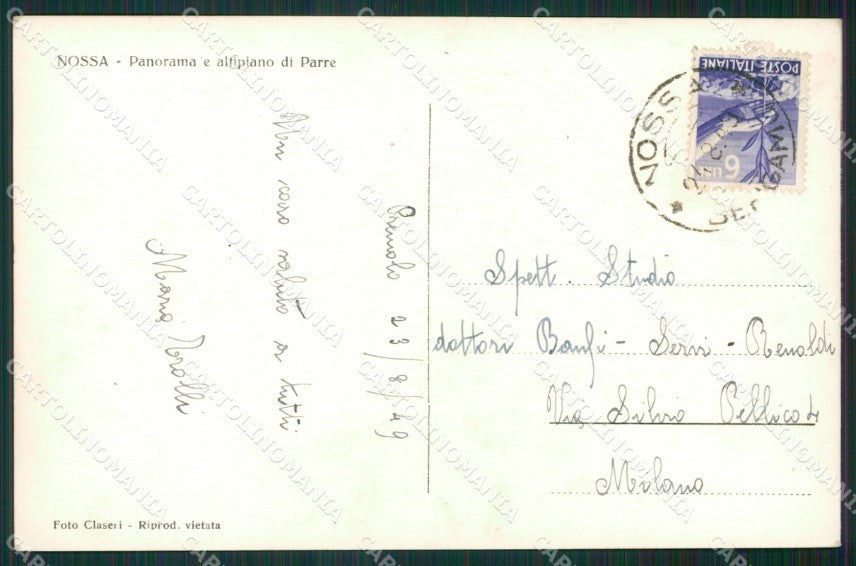 NOSSA - Panorama e altipiano di Parre
POSTE ITALIANE
6 LIRE
NOSSA
BERGAMO
Premolo 23/8/49
Un caro saluto a tutti
Maria
Spett. Studio
dottori Banfi - Servi - Renoldi
Via Silvio Pellico 4
Milano
Foto Claseri - Riprod. vietata
CARTOLINOMANIA